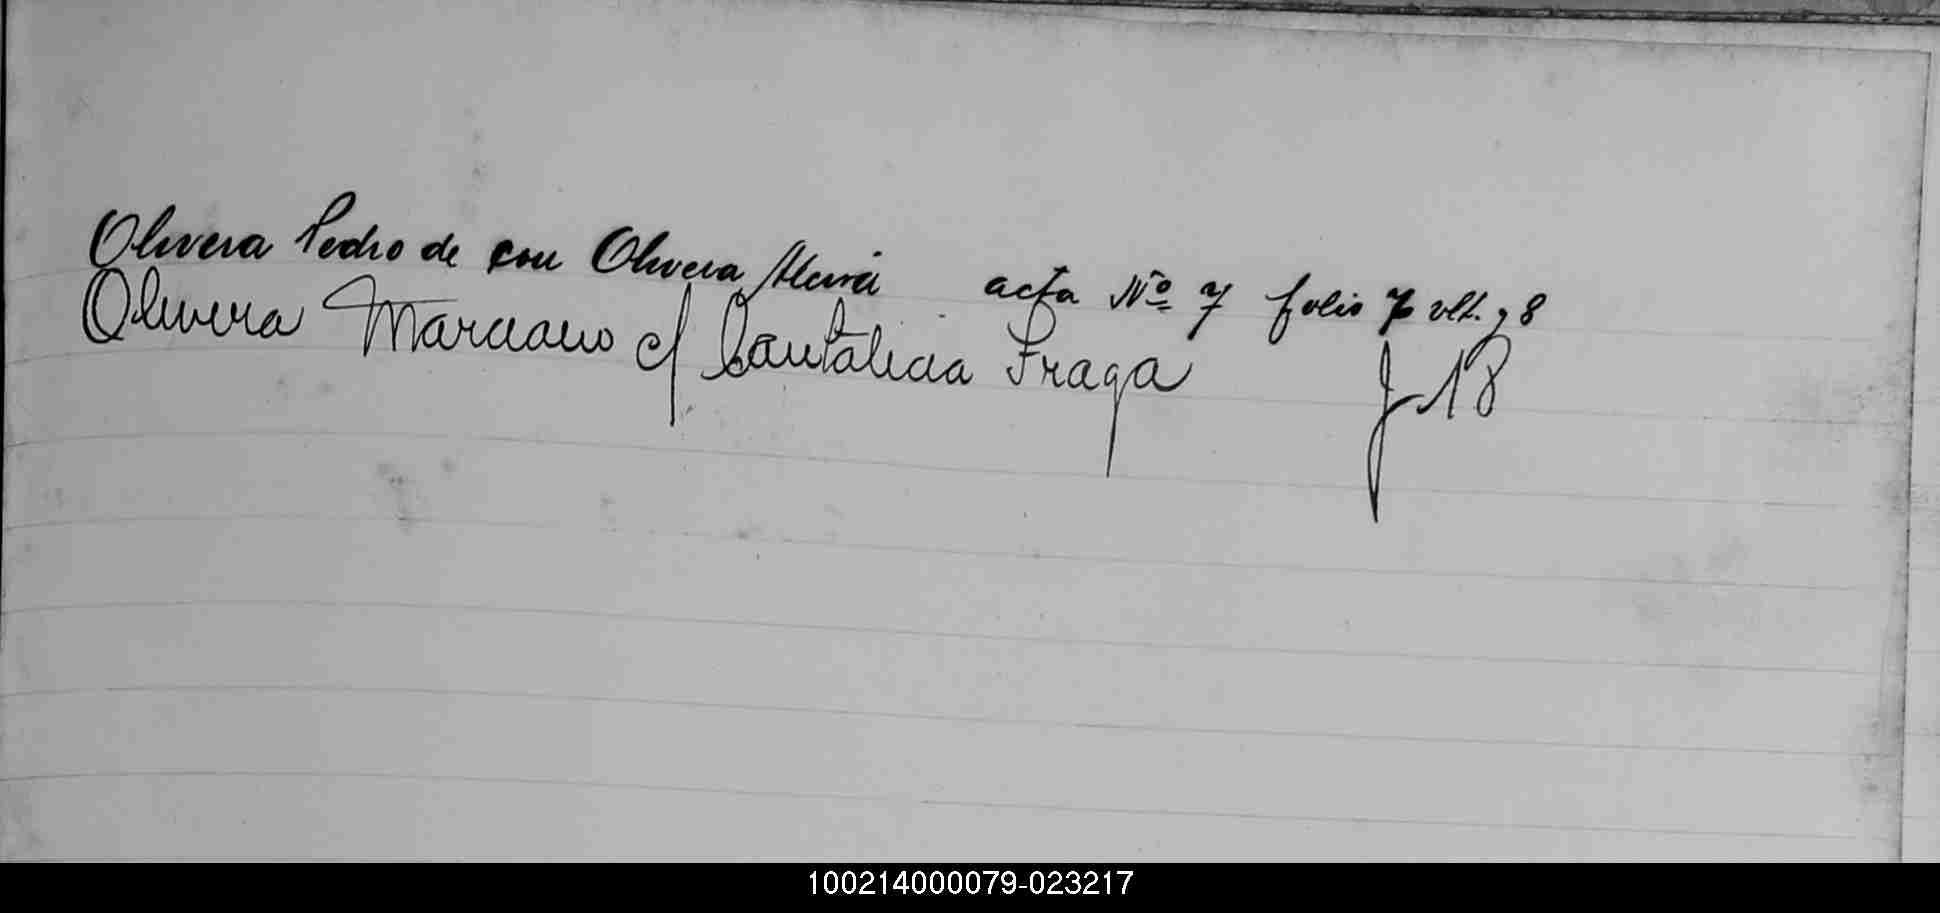 Olivera Pedro de con Olivera María acta Nº 7 folio 7 vlt. y 8
Olivera Marciano c/ Cantalicia Fraga f 18
100214000079-023217